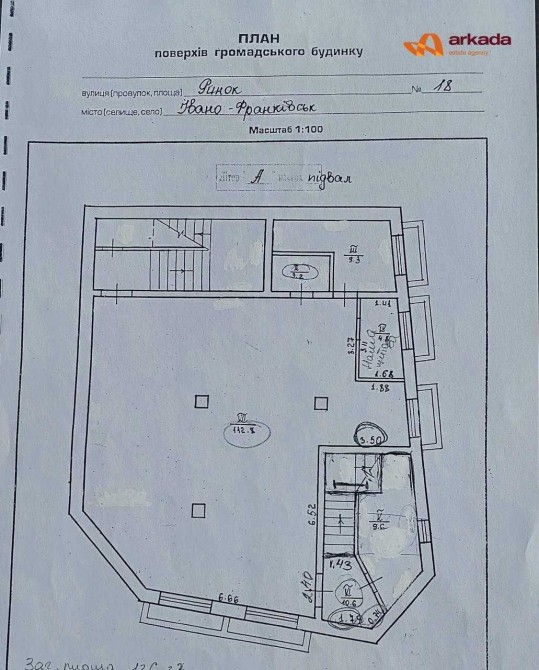 ПЛАН
поверхів громадського будинку
arkada
estate agency
вулиця (провулок, площа) Ринок № 18
місто (селище, село) Івано-Франківськ
Масштаб 1:100
Літер "А" підвал
III
9.3
II
7.2
1.41
IV
4.8
3.27
3.11
1.68
1.88
112.8
3.50
V
9.6
6.52
1.43
2.40
VI
10.6
1.79
6.66
Заг. площа